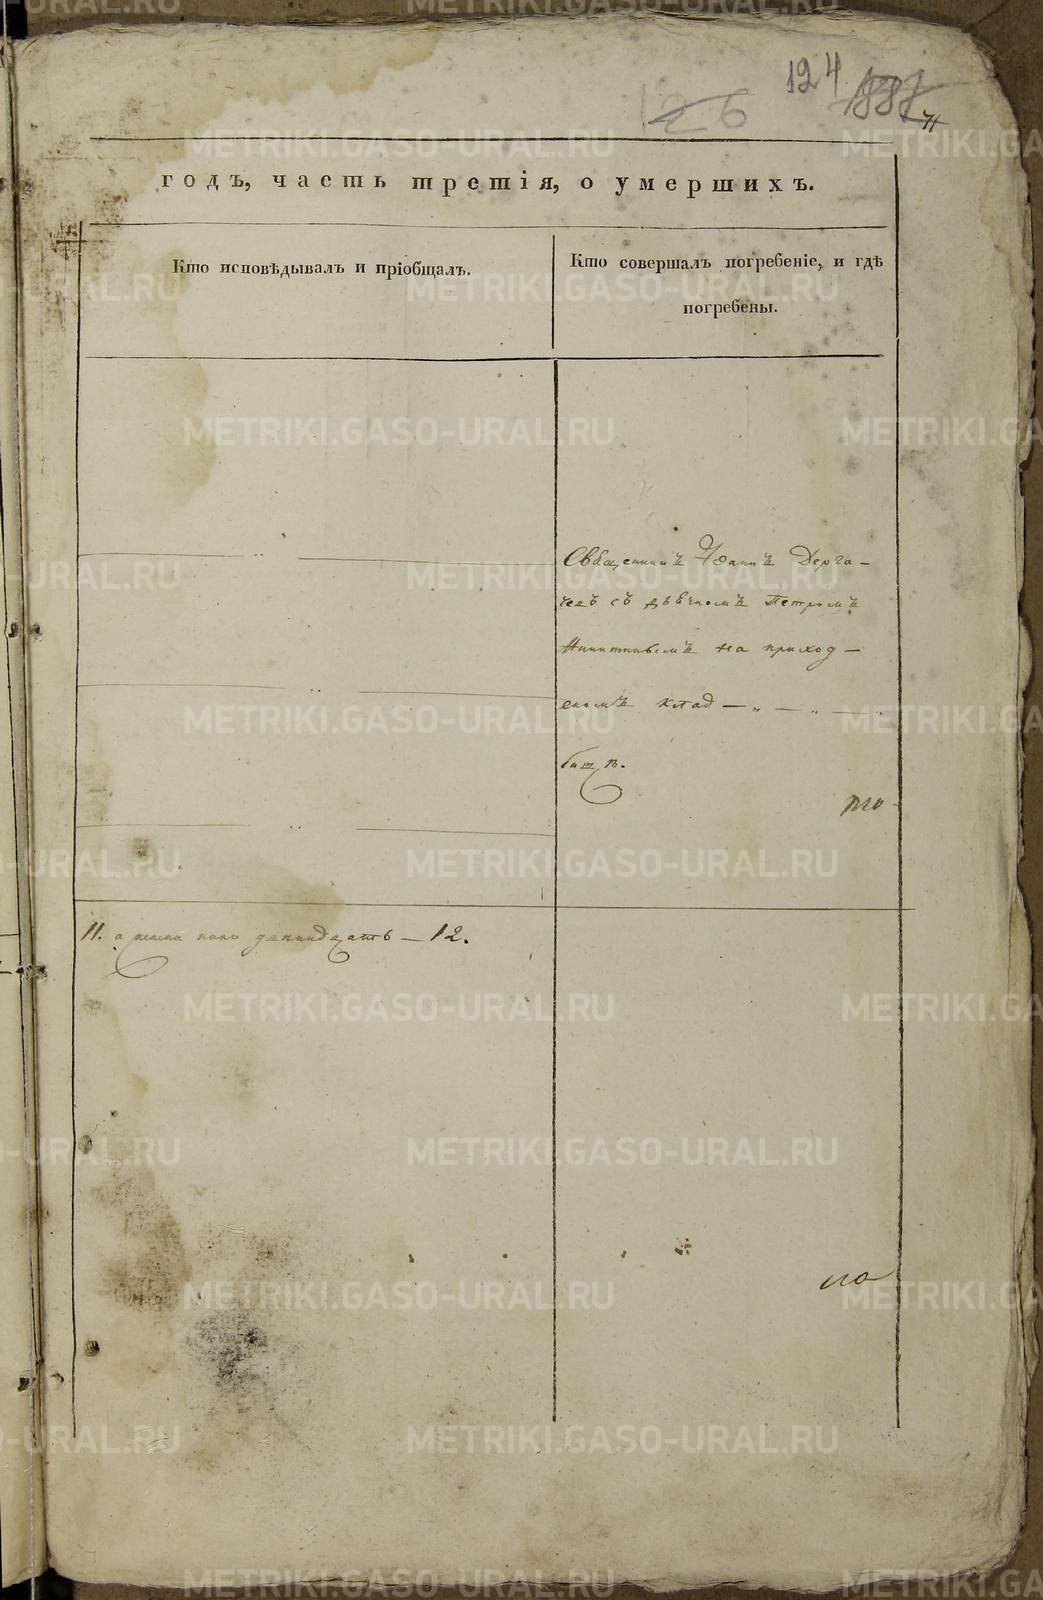 124
126
годъ, часть третія, о умершихъ.
Кто исповѣдывалъ и пріобщалъ.
Кто совершалъ погребеніе, и гдѣ
погребены.
Священникъ Іоаннъ Дерга-
чевъ съ дьячкомъ Петромъ
Никитинымъ на приход-
скомъ клад-
бищѣ.
11. а женска полу двенадцать - 12.
METRIKI.GASO-URAL.RU